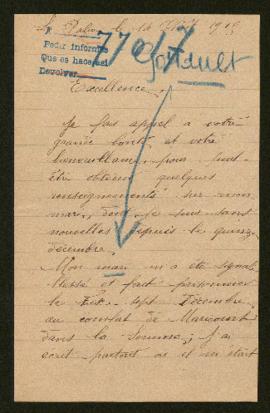 le 14 1915
Pedir informe
Que es hace así
Devolver
77017
Gontault
Excellence,
Je fais appel à votre
grande bonté et votre
bienveillance pour peut-
être obtenir quelques
renseignements sur mon
mari, dont je suis sans
nouvelles depuis le quinze
décembre.
Mon mari m'a été signalé
blessé et fait prisonnier
le dix-sept Décembre
au combat de Maricourt
dans la Somme, j'ai
écrit partout où il en était